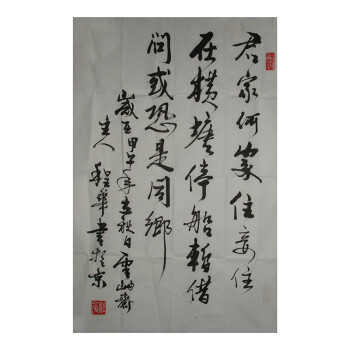 君家何處住妾住
在横塘停船暫借
問或恐是同鄉
歲在甲午年立秋日雲岫齋
主人程華書於京